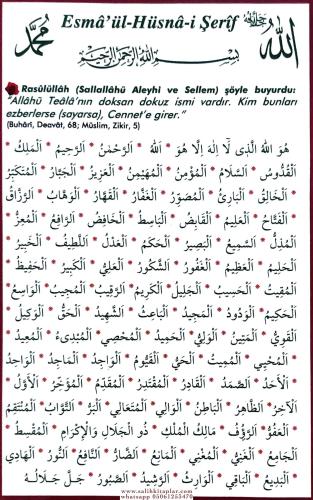 محمد
Esmâ'ül-Hüsnâ-i Şerîf
الله
بِسْمِ اللهِ الرَّحْمٰنِ الرَّحِيمِ
Rasûlüllâh (Sallallâhü Aleyhi ve Sellem) şöyle buyurdu:
"Allâhü Teâlâ'nın doksan dokuz ismi vardır. Kim bunları
ezberlerse (sayarsa), Cennet'e girer."
(Buhârî, Deavât, 68; Müslim, Zikir, 5)
هُوَ اللهُ الَّذِى لَا اِلٰهَ اِلَّا هُوَ * اَللهُ * اَلرَّحْمٰنُ * اَلرَّحِيمُ * اَلْمَلِكُ
اَلْقُدُّوسُ * اَلسَّلَامُ * اَلْمُؤْمِنُ * اَلْمُهَيْمِنُ * اَلْعَزِيزُ * اَلْجَبَّارُ * اَلْمُتَكَبِّرُ
* اَلْخَالِقُ * اَلْبَارِئُ * اَلْمُصَوِّرُ * اَلْغَفَّارُ * اَلْقَهَّارُ * اَلْوَهَّابُ * اَلرَّزَّاقُ
* اَلْفَتَّاحُ * اَلْعَلِيمُ * اَلْقَابِضُ * اَلْبَاسِطُ * اَلْخَافِضُ * اَلرَّافِعُ * اَلْمُعِزُّ *
اَلْمُذِلُّ * اَلسَّمِيعُ * اَلْبَصِيرُ * اَلْحَكَمُ * اَلْعَدْلُ * اَللَّطِيفُ * اَلْخَبِيرُ
* اَلْحَلِيمُ * اَلْعَظِيمُ * اَلْغَفُورُ * اَلشَّكُورُ * اَلْعَلِىُّ * اَلْكَبِيرُ * اَلْحَفِيظُ *
اَلْمُقِيتُ * اَلْحَسِيبُ * اَلْجَلِيلُ * اَلْكَرِيمُ * اَلرَّقِيبُ * اَلْمُجِيبُ * اَلْوَاسِعُ *
اَلْحَكِيمُ * اَلْوَدُودُ * اَلْمَجِيدُ * اَلْبَاعِثُ * اَلشَّهِيدُ * اَلْحَقُّ * اَلْوَكِيلُ
* اَلْقَوِىُّ * اَلْمَتِينُ * اَلْوَلِىُّ * اَلْحَمِيدُ * اَلْمُحْصِى * اَلْمُبْدِىءُ * اَلْمُعِيدُ
* اَلْمُحْيِى * اَلْمُمِيتُ * اَلْحَىُّ * اَلْقَيُّومُ * اَلْوَاجِدُ * اَلْمَاجِدُ * اَلْوَاحِدُ
* اَلْاَحَدُ * اَلصَّمَدُ * اَلْقَادِرُ * اَلْمُقْتَدِرُ * اَلْمُقَدِّمُ * اَلْمُؤَخِّرُ * اَلْاَوَّلُ *
اَلْاٰخِرُ * اَلظَّاهِرُ * اَلْبَاطِنُ * اَلْوَالِى * اَلْمُتَعَالِى * اَلْبَرُّ * اَلتَّوَّابُ * اَلْمُنْتَقِمُ
* اَلْعَفُوُّ * اَلرَّؤُفُ * مَالِكُ الْمُلْكِ * ذُو الْجَلَالِ وَالْاِكْرَامِ * اَلْمُقْسِطُ *
اَلْجَامِعُ * اَلْغَنِىُّ * اَلْمُغْنِى * اَلْمَانِعُ * اَلضَّارُّ * اَلنَّافِعُ * اَلنُّورُ * اَلْهَادِى
* اَلْبَدِيعُ * اَلْبَاقِى * اَلْوَارِثُ * اَلرَّشِيدُ * اَلصَّبُورُ * جَلَّ جَلَالُهُ
www.salihkitaplar.com
whatsapp 05061253470